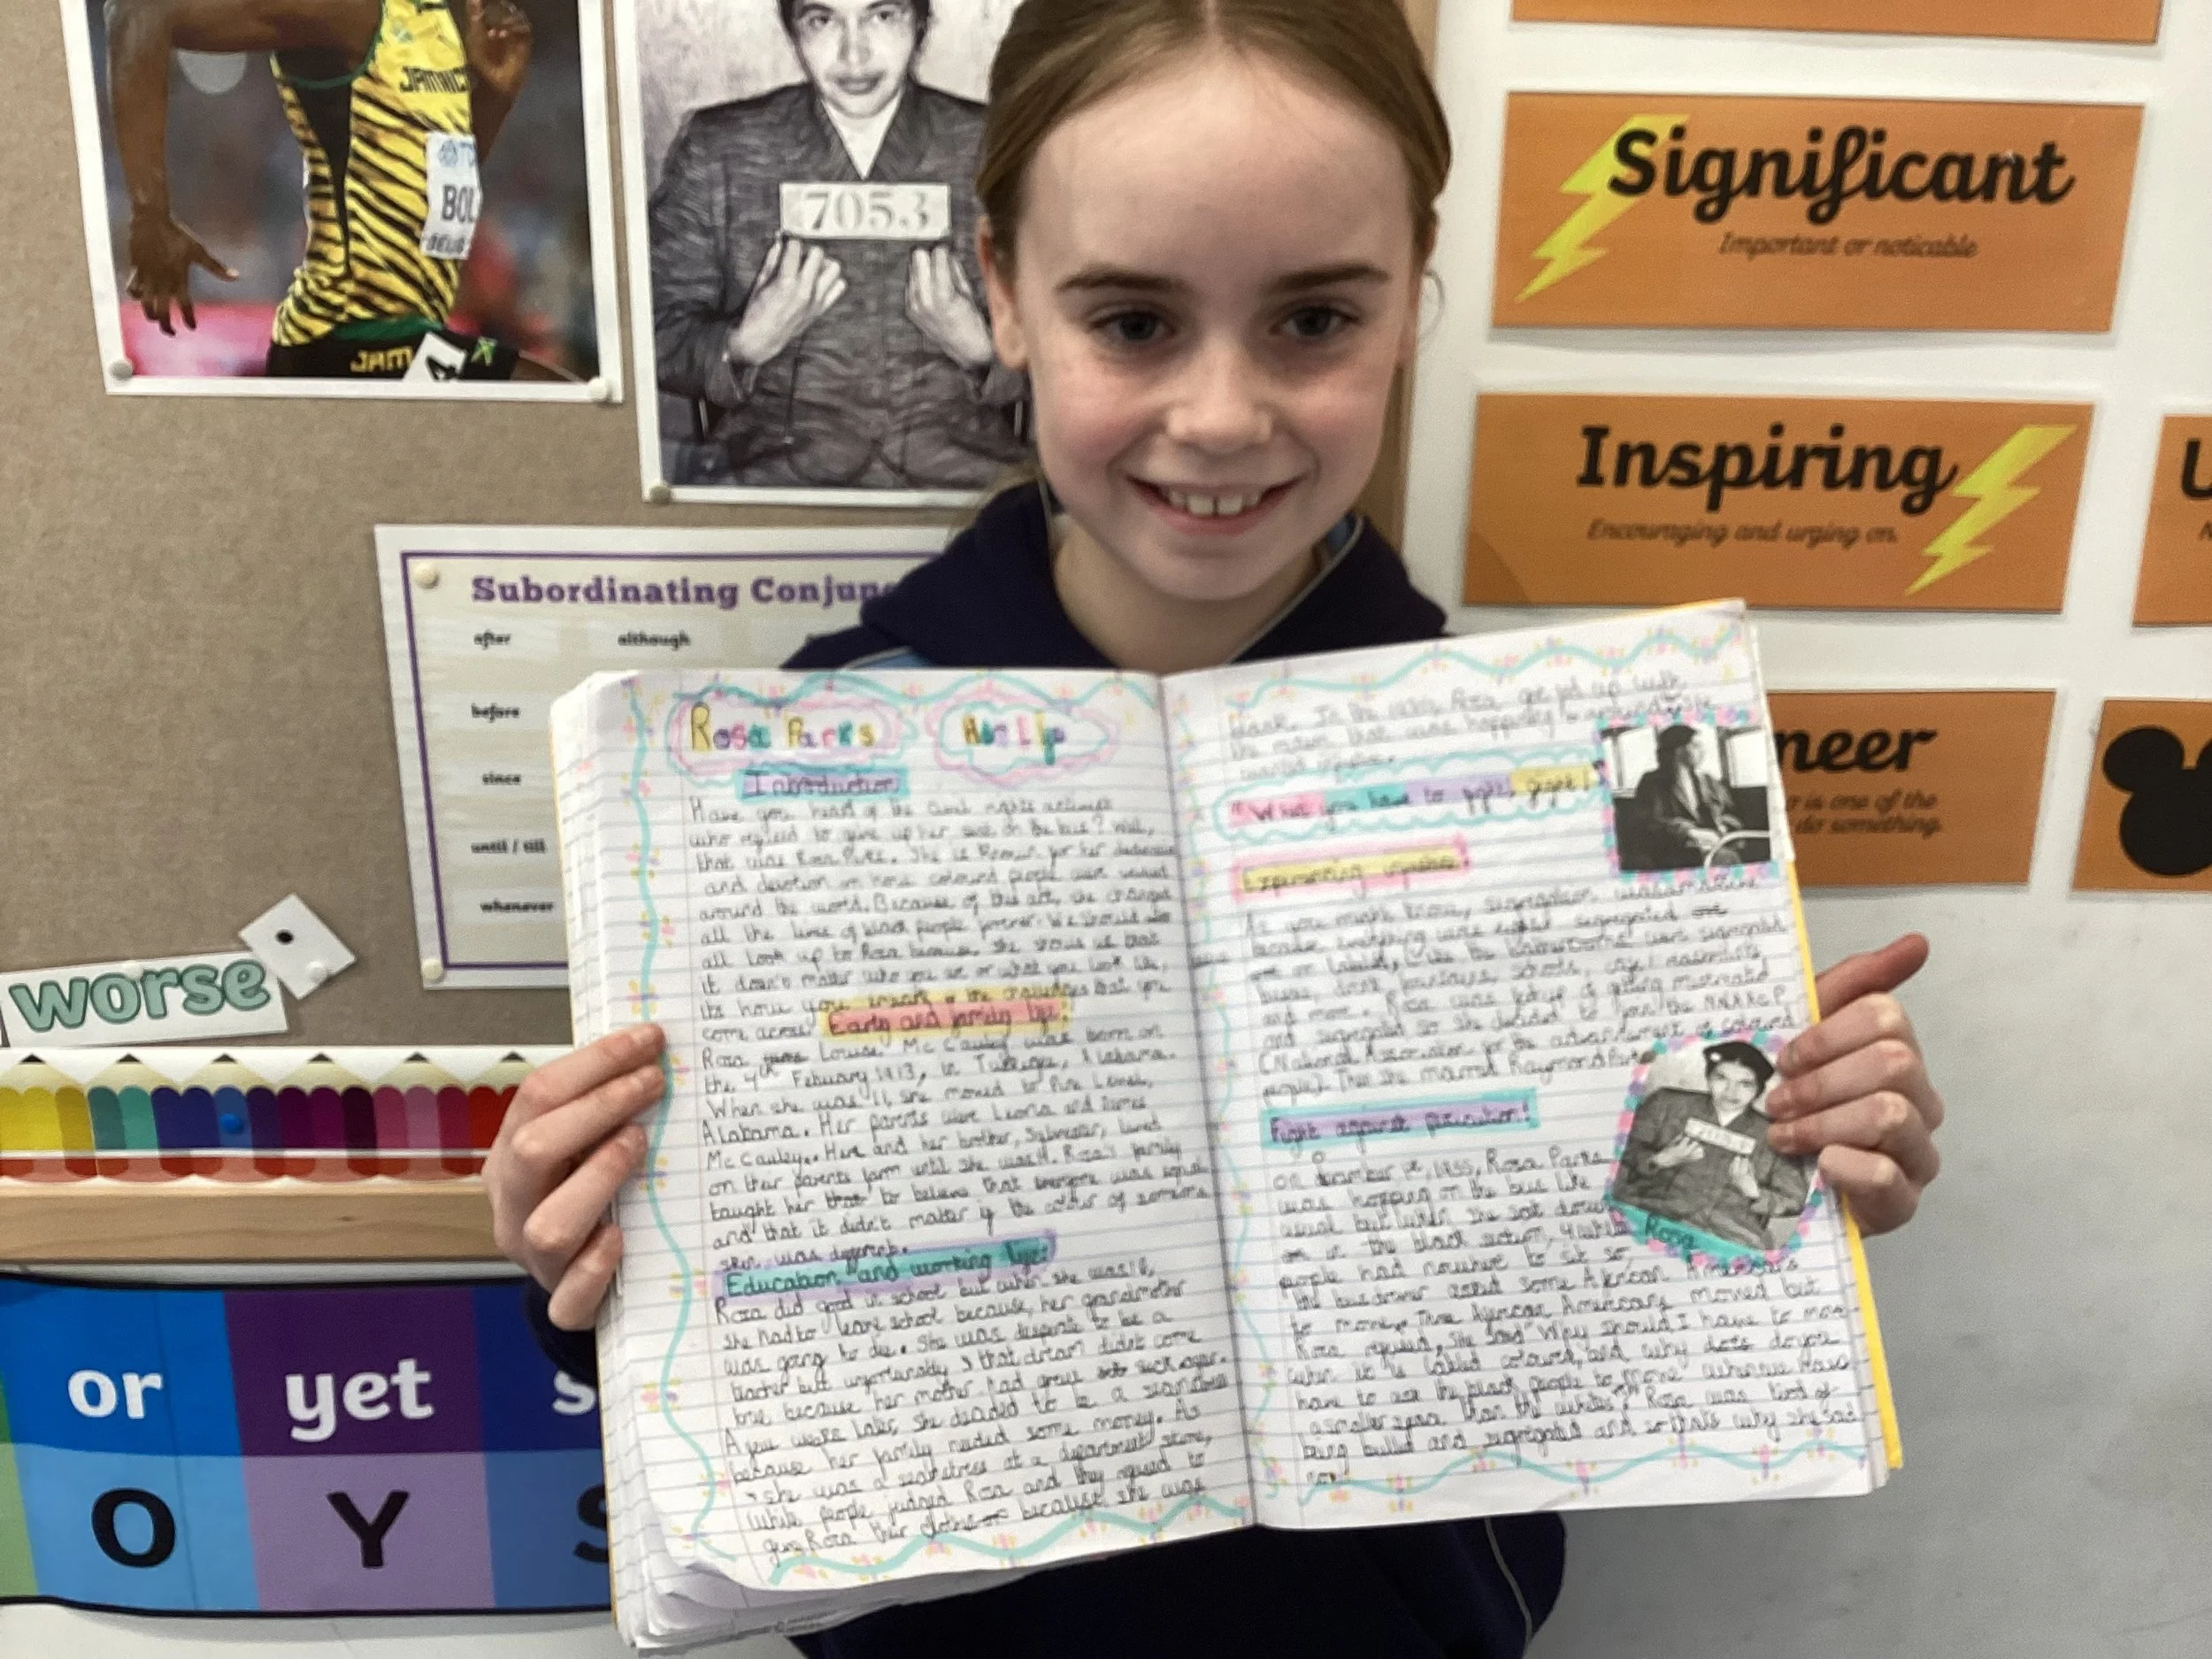 JAMAICA
BOL
JAM
7053
Significant
Important or noticable
Inspiring
Encouraging and urging on.
neer
r is one of the
do something.
Subordinating Conjun
after
although
before
since
until / till
whenever
worse
or
yet
s
O
Y
S
Rosa Parks
Introduction
Have you heard of the civil rights activist
who refused to give up her seat on the bus? Well,
that was Rosa Parks. She is known for her
and devotion on how coloured people were
around the world. Because of this act, she changed
all the lives of black people forever. We should
all look up to Rosa because, she shows us that
it doesn't matter who you are or what you look like,
its how you the that you
come across!
Early and family life!
Rosa Louise Mc Cauley was born on
the 4th Febuary 1913, in Alabama.
When she was 11, she moved to Pine Level,
Alabama. Her parents were Leona and James
Mc Cauley. and her brother, Sylvester, lived
on their parents farm until she was 11. Rosa's family
taught her to believe that everyone was equal
and that it didn't matter if the colour of someone
skin was different.
Education and working life!
Rosa did good in school but when she was 16,
she had to leave school because, her grandmother
was going to die. She was desperate to be a
teacher but unfortunately, that dream didn't come
true because her mother had grew sick
A few years later, she decided to be a seamstress
because her family needed some money. As
she was a seamstress at a department store,
white people judged Rosa and they refused to
give Rosa their clothes because she was
black. In the Rosa got fed up with
the racism that was happening
"What you have to fight, fight!"
Experiencing
As you might know, segregation
because everything were segregated
or labled, like the were segregated
buses, schools,
and more. Rosa was fed up of getting mistreated
and segregated so she decided to join the NAACP
(National Association for the advancement of coloured
people). Then she married Raymond Parks
Fight against
On December 1st, 1955, Rosa Parks
was hopping on the bus like
usual but when she sat down
in the black section, 4 white
people had nowhere to sit so,
the bus driver asked some African Americans
to move. Three African Americans moved but
Rosa refused, she said "Why should I have to move
when it is called coloured, and why do you
have to ask the black people to move when we have
a smaller space than the whites?" Rosa was tired of
being bullied and segregated and so that's why she said
Rosa